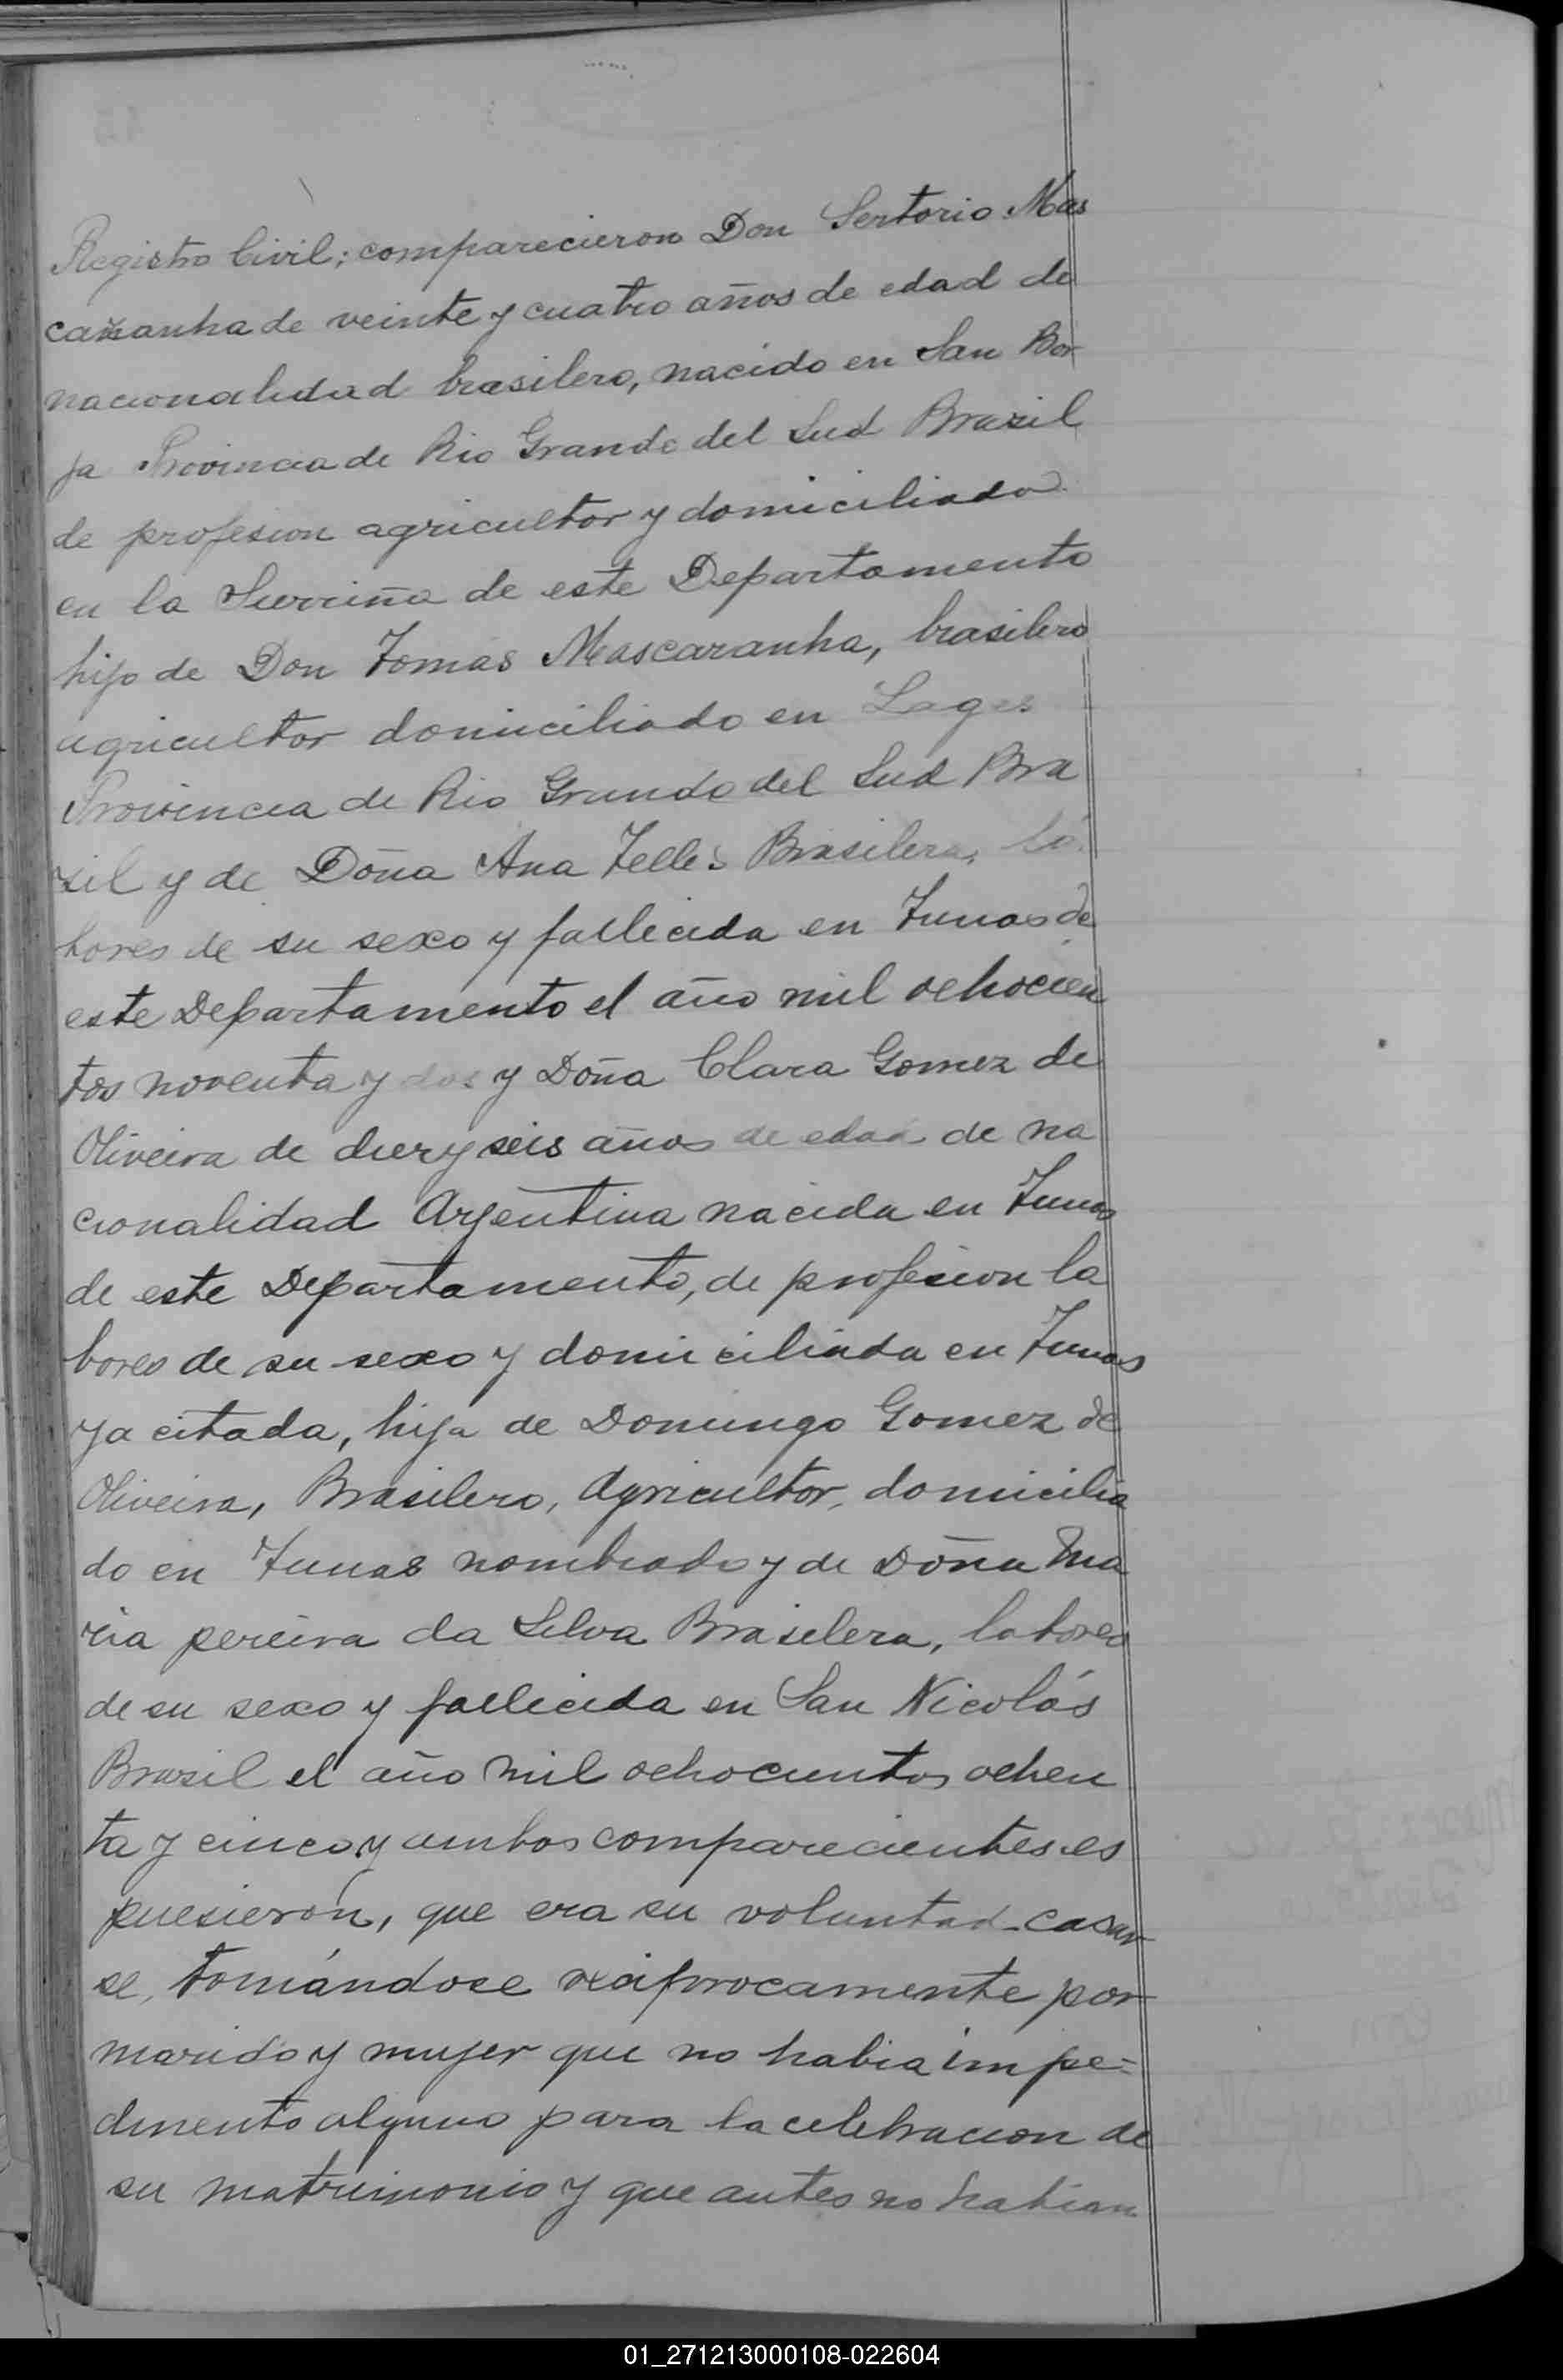 Registro Civil; comparecieron Don Sertorio Mas
caranha de veinte y cuatro años de edad de
nacionalidad brasilero, nacido en San Bor
ja Provincia de Rio Grande del Sud Brazil
de profesion agricultor y domiciliado
en la de este Departamento
hijo de Don Tomas Mascaranha, brasilero
agricultor domiciliado en Lages
Provincia de Rio Grande del Sud Bra
zil y de Doña Ana Telles Brasilera, la
bores de su sexo y fallecida en Tunas de
este Departamento el año mil ochocien
tos noventa y dos y Doña Clara Gomez de
Oliveira de diez y seis años de edad de na
cionalidad Argentina nacida en Tunas
de este Departamento, de profesion la
bores de su sexo y domiciliada en Tunas
ya citada, hija de Domingo Gomez de
Oliveira, Brasilero, Agricultor, domicilia
do en Tunas nombrado y de Doña Ma
ria pereira da Silva Brasilera, labores
de su sexo y fallecida en San Nicolás
Brazil el año mil ochocientos ochen
ta y cinco y ambos comparecientes es
puesieron, que era su voluntad casar
se, tomándose reciprocamente por
marido y mujer que no habia impe=
dimento alguno para la celebracion de
su matrimonio y que antes no habian
01_271213000108-022604